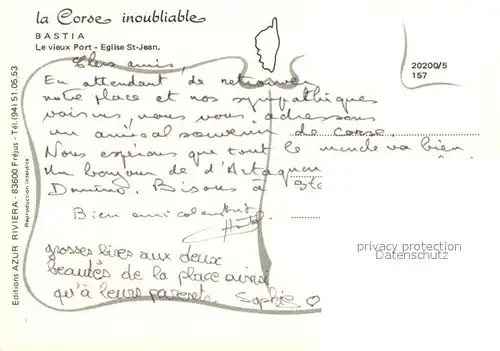 la Corse inoubliable
BASTIA
Le vieux Port - Eglise St-Jean.
20200/5
157
Chers amis,
En attendant de retrouver
notre place et nos sympathiques
voisins, nous vous adressons
un amical souvenir de Corse.
Nous espérons que tout le monde va bien.
Un bonjour de d'Artagnan
Bisous à
Bien amicalement
grosses bises aux deux
beautés de la place ainsi
qu'à leurs parents. Sophie
privacy protection
Datenschutz
Editions AZUR RIVIERA - 83600 Fréjus - Tél. (94) 51.05.53
Reproduction interdite